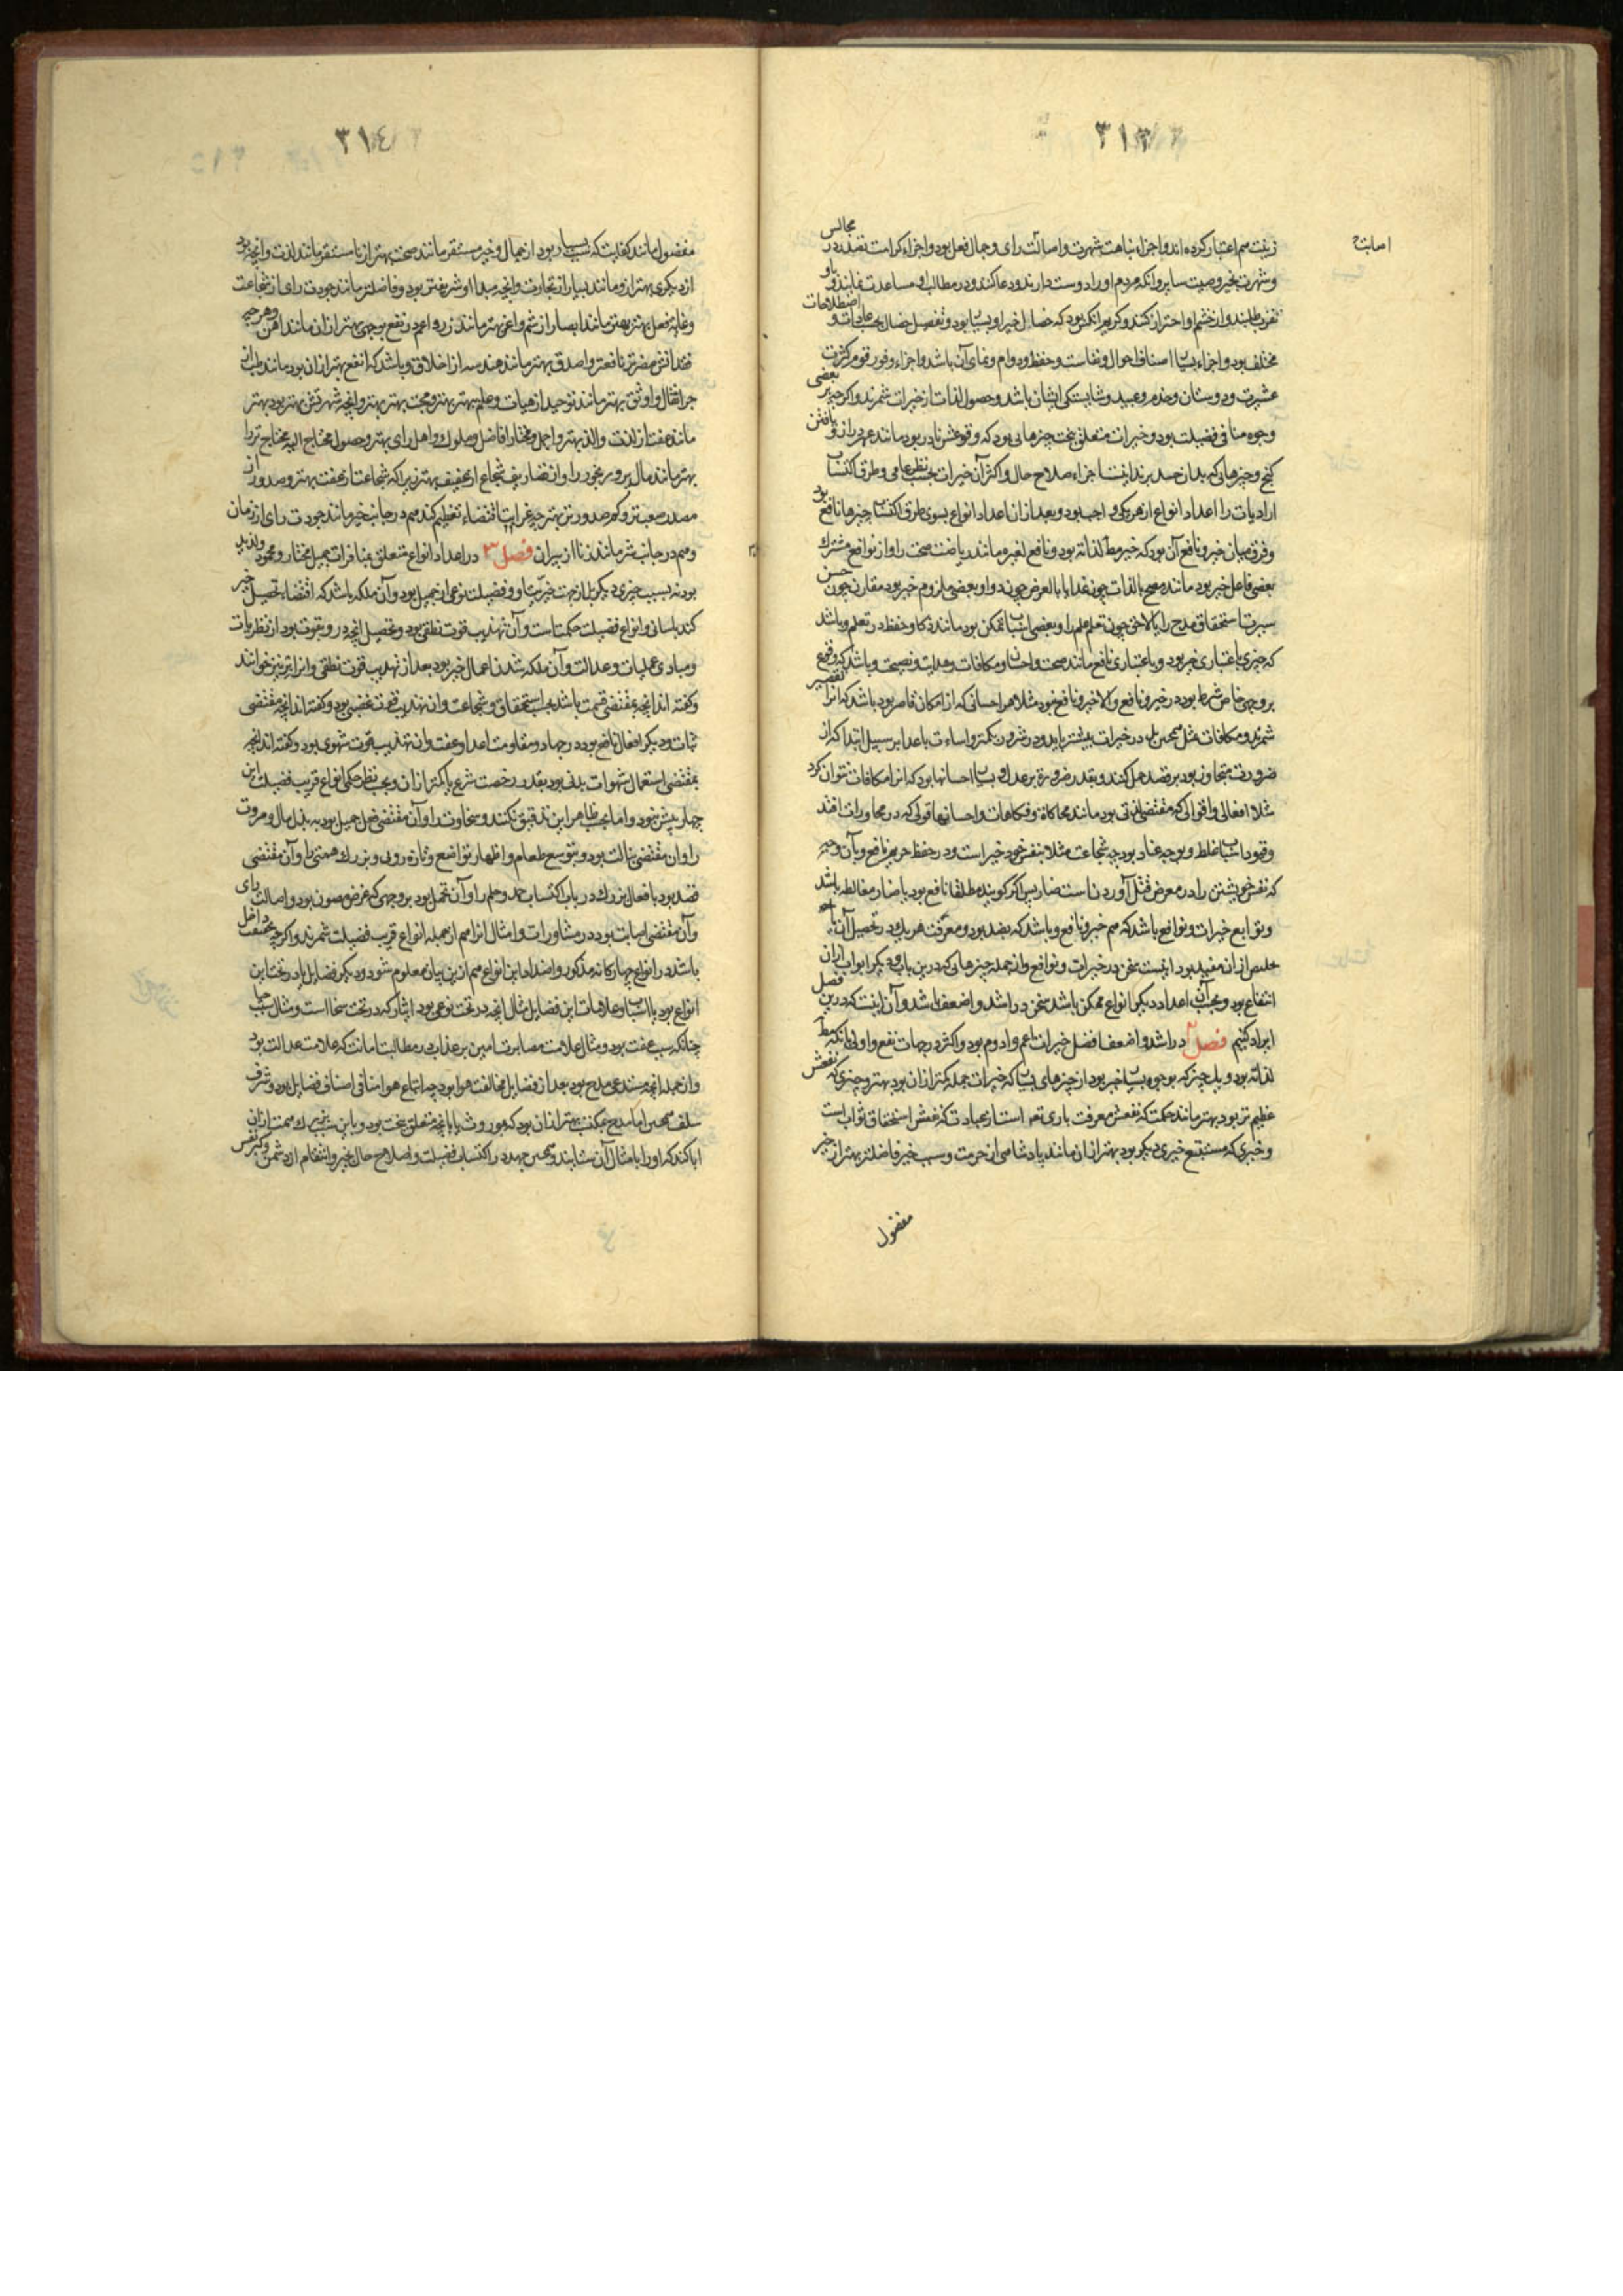 ٣١٣
اصابت
زینت هم اعتبار کرده اند و اجزاء نباهت شهرت و اصالت رای و جمال فعل بود و اجزاء کرامت تقدم در مجالس
و شهرت بخیر وصیت سایر و آنکه مردم او را دوست دارند و دعا کنند و در مطالب او مساعدت نمایند و باو
تقرب طلبند و از خشم او احتراز کنند و کریم آنکس بود که خصال خیر او بسیار بود و تفصیل خصال بحسب عادات و اصطلاحات
مختلف بود و اجزاء اصناف احوال و نفاست و حفظ و دوام و نمای آن باشد و اجزاء وفور قوم کثرت
عشیرت و دوستان و خدم و عبید و شایستگی ایشان باشد و حصول لذات از خیرات شمرند و اگر چه بر بعضی
وجوه منافی فضیلت بود و خیرات متعلق ببخت چیزهایی بود که وقوعش نادر بود مانند عمر دراز و یافتن
گنج و چیزهای که بدان حسد برند اینست اجزاء صلاح حال و اکثر آن خیرات بحسب نظر عامی و طرق اکتساب
ارادیات را اعداد انواع از هر یکی واجب بود و بعد از ان اعداد انواع بسوی طرق اکتساب چیزها نافع بود
و فرق میان خیر و نافع آن بود که خیر مطلوب لذاته بود و نافع لغیره مانند ریاضت صحت را و از نوافع مشترک
بعضی فاعل خیر بود مانند مصح بالذات چون غذا یا بالعرض چون دوا و بعضی ملزوم خیر بود مقارن چون حسن
سیرت استحقاق مدح را یا لاحق چون تعلم علم را و بعضی اسباب تمکن بود مانند ذکا و حفظ در تعلم و باشد
که چیزی باعتباری خیر بود و باعتباری نافع مانند صحت و احسان و مکافات و هدایت و نصیحت و باشد که وقوع
بر وجهی خاص شرط بود در خیر و نافع و الا خیر و نافع نبود مثلا هر احسانی که از امکان قاصر بود باشد که آنرا تقصیر
شمرند و مکافات مثل محسن بل در خیرات بیشتر باید و در شرور بکمتر و اساءت باعدا بر سبیل ابتدا که از
ضرورت متجاوز بود بر قصد حمل کنند و بقدر ضرورة بر عدل و بسیار احسانها بود که آنرا مکافات نتوان کرد
مثلا افعالی و اقوالی که مقتضی لذتی بود مانند محاکاة و فکاهات و احسانها قولی که در محاورات افتد
وقوداسباب غلط و بوجه عناد بود چه شجاعت مثلا بنفس خود خیر است و در حفظ حریم نافع و بآن وجه
که نفس خویشتن را در معرض قتل آوردنست ضار پس اگر گویند مطلقا نافع بود یا ضار مغالطه باشد
و توابع خیرات و نوافع باشد که هم خیر و نافع و باشد که بضد بود و معرفت هر یک در تحصیل آن یا
خلاص از ان مفید بود اینست سخن در خیرات و نوافع و از جمله چیزهایی که درین باب و دیگر ابواب از ان
انتفاع بود و بحسب آن اعداد دیگر انواع ممکن باشد سخن در اشد و اضعف باشد و آن اینست که درین فصل
ایراد کنیم فصل ٢ در اشد و اضعف افضل خیرات اعم و ادوم بود و اکثر در جهات نفع و اولی بانکه مطلوب
لذاته بود و یک چیز که بوجوه بسیار خیر بود از چیزهای بسیار که خیرات جمله کمتر از ان بود بهتر و چیزی که نفعش
عظیم تر بود بهتر مانند حکمت که نفعش معرفت باری تعالی است از عبادت که نفعش استحقاق ثواب است
و خیری که مستتبع خیری دیگر بود بهتر از ان مانند پادشاهی از حرمت و سبب خیر فاضلتر بهتر از خیر
مفضول
٣١٤
مفضول مانند کفایت که سبب یسار بود از جمال و خیر مستقر مانند صحت بهتر از نا مستقر مانند لذت و آنچه بود
از دیگری بهتر ازو مانند یسار از تجارت و آنچه مبدا او شریفتر بود و فاضلتر مانند جودت رای از شجاعت
و غایة فعل بهتر بهتر مانند ابصار از شم و اعز بهتر مانند زر و اعم در نفع بوجهی بهتر از ان مانند آهن و هر چه
فقدانش مضرتر نافعتر و اصدق بهتر مانند هندسه از اخلاق و باشد که انفع بهتر از ان بود مانند طب از
جر اثقال و اوثق بهتر مانند توحید از هیات و علم بهتر بهتر و محبت بهتر بهتر و آنچه شهرتش بهتر بود بهتر
مانند عفت از لذت و الذ بهتر و اجمل و مختار افاضل و ملوک و اهل رای بهتر و حصول محتاج الیه محتاج تر را
بهتر مانند مال پیر و رنجور را و از تضاریف شجاع از عفیف بهتر زیرا که شجاعت از عفت بهتر و صدور از
مصدر صعبتر و کم صدورتر بهتر چه غرابت اقتضاء تعظیم کند هم در جانب خیر مانند جودت رای از زنان
و هم در جانب شر مانند زنا از پیران فصل ٣ در اعداد انواع متعلق بمنافرات جمیل مختار و محمود و لذیذ
بود نه بسبب چیزی دیگر بل از جهت خیریت او و فضیلت نوعی از جمیل بود و آن ملکه باشد که اقتضاء تحصیل خیر
کند باسانی و انواع فضیلت حکمتست و آن تهذیب قوت نطقی بود و تحصیل آنچه در و بقوت بود از نظریات
و مبادی عملیات و عدالت و آن ملکه شدن اعمال خیر بود بعد از تهذیب قوت نطقی و آنرا بر نیز خوانند
و گفته اند آنچه بمقتضی قسمت باشد بحسب استحقاق و شجاعت و ان تهذیب قوت غضبی بود و گفته اند آنچه مقتضی
ثبات و دیگر افعال ناجح بود در جهاد و مقاومت اعدا و عفت و ان تهذیب قوت شهوی بود و گفته اند آنچه
بمقتضی استعمال شهوات بدنی بود بقدر رخصت شرع یا کمتر از ان و بحسب نظر حکمی انواع قریب فضیلت این
چهار بیش نبود و اما بحسب ظاهر این تدقیق نکنند و سخاوت را و آن مقتضی فعل جمیل بود به بذل مال و مروت
را و ان مقتضی نبالت بود و بتوسع طعام و اظهار تواضع و تازه روی و بزرک همتی را و آن مقتضی
قصد بود بافعال بزرک در باب اکتساب حمد و حلم را و آن تحمل بود بر وجهی که عرض مصون بود و اصالت رای
و آن مقتضی اصابت بود در مشاورات و امثال آنرا هم از جمله انواع قریب فضیلت شمرند و اگر چه بحقیقت داخل
باشد در انواع چهارگانه مذکور و اضداد این انواع هم ازین بیان معلوم شود و دیگر فضایل یا در تحت این
انواع بود یا اسباب و علامات این فضایل مثال آنچه در تحت نوعی بود ایثار که در تحت سخا است و مثال سبب حیا
چنانکه سبب عفت بود و مثال علامت مصابرت امین بر عذاب در مطالبت امانت که علامت عدالت بود
و از جمله آنچه مستدعی مدح بود بعد از فضایل مخالفت هوا بود چه اتباع هوا منافی اصناف فضایل بود و شرف
سلف همچنین اما مدح بمکتسب بهتر از ان بود که بموروث یا بانچه متعلق ببخت بود و باین سبب بزرک همت از ان
ابا کند که او را بامثال آن ستایند و همچنین جهد در اکتساب فضیلت و اصلاح حال بخیر و انتقام از دشمن و کبر نفس